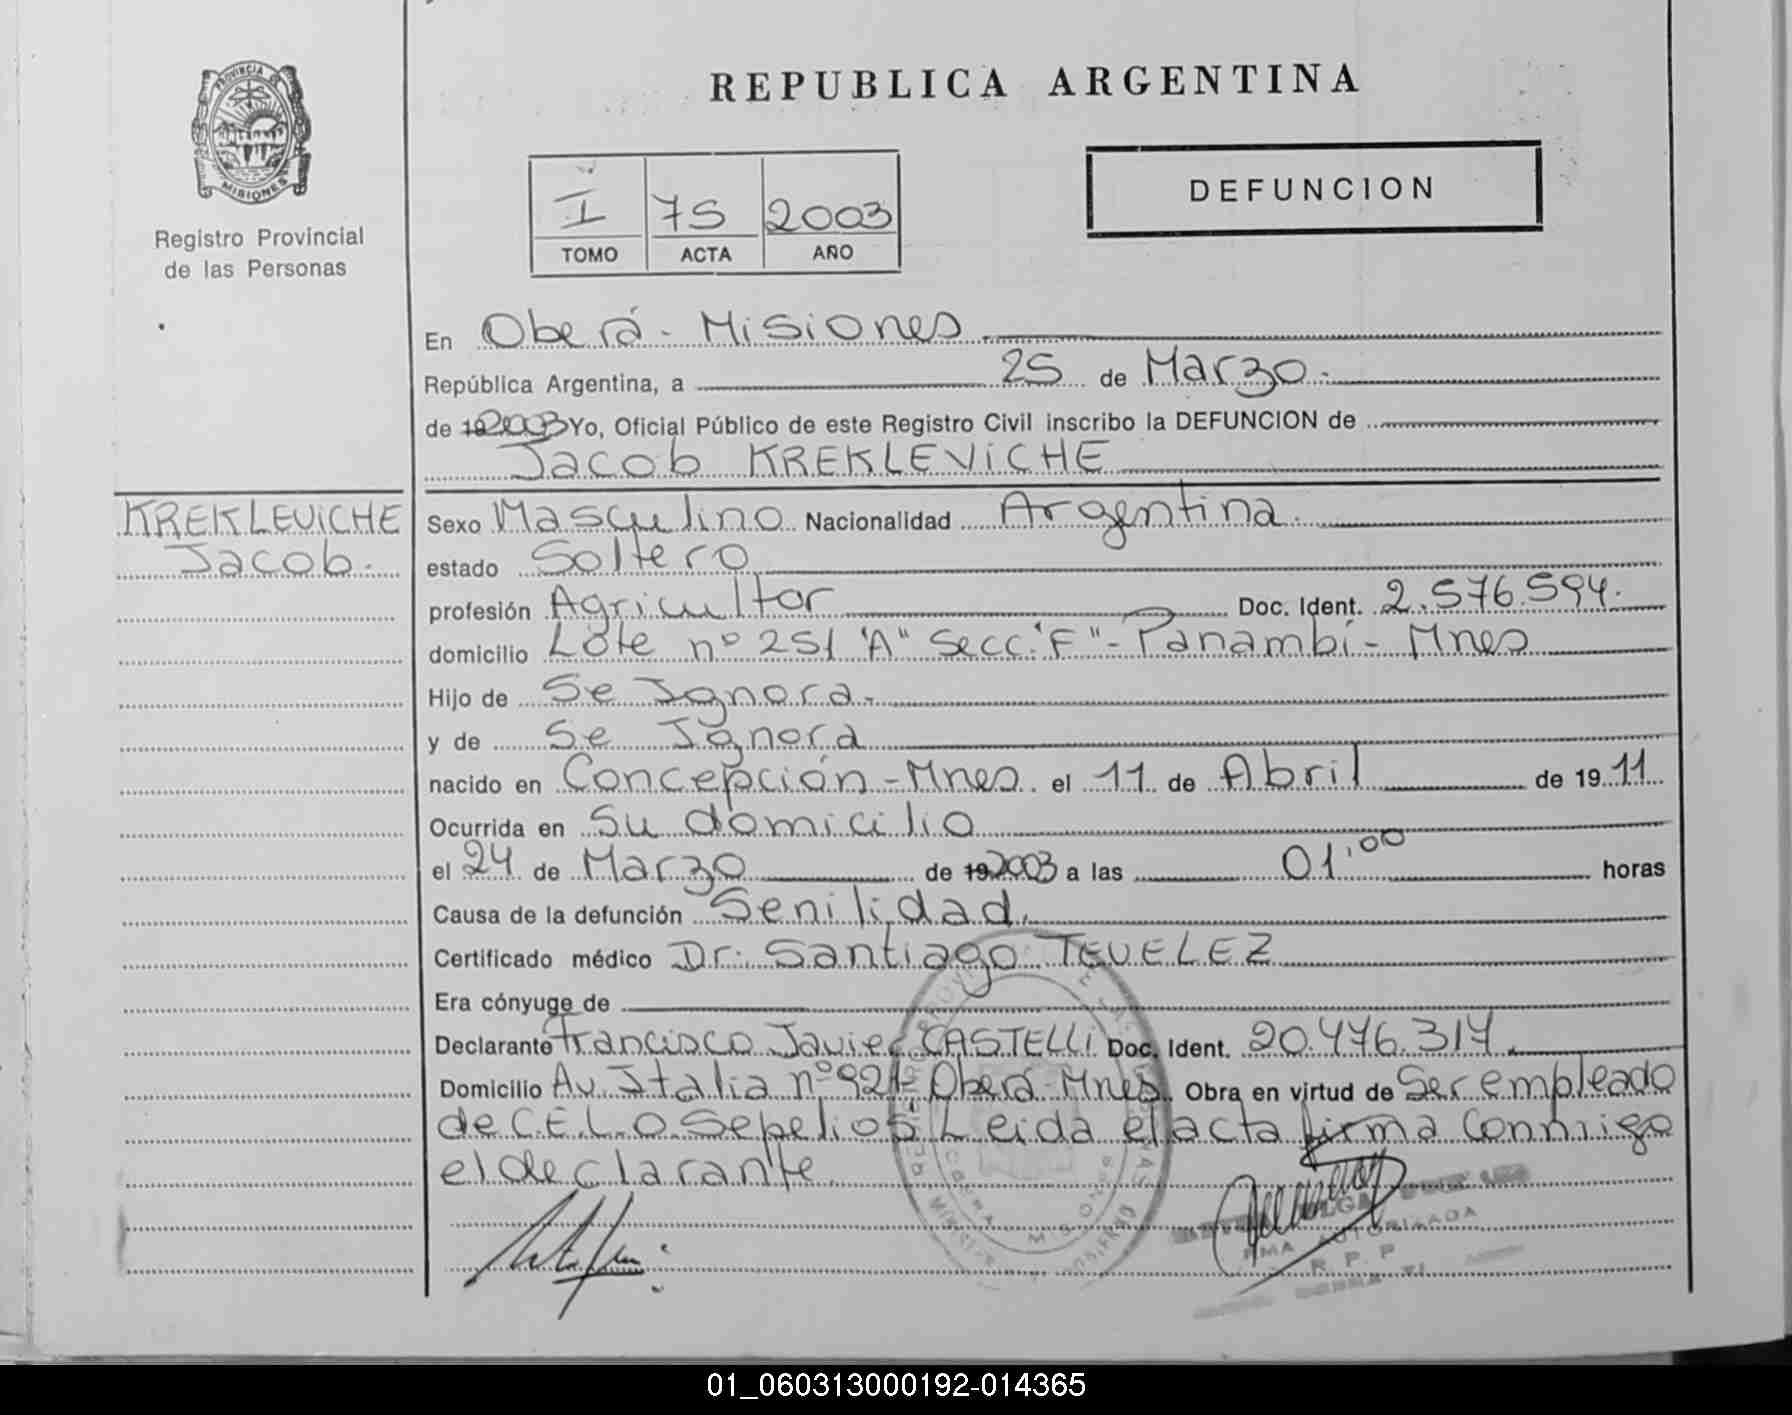 PROVINCIA DE
MISIONES
Registro Provincial
de las Personas
REPUBLICA ARGENTINA
DEFUNCION
I 75 2003
TOMO ACTA AÑO
En Oberá - Misiones
República Argentina, a 25 de Marzo.
de 19 2003 Yo, Oficial Público de este Registro Civil inscribo la DEFUNCION de
Jacob KREKLEViCHE
KREKLEViCHE
Jacob.
Sexo Masculino Nacionalidad Argentina.
estado Soltero
profesión Agricultor Doc. Ident. 2.576.594.
domicilio Lote nº 251 "A" Secc. "F" - Panambí - Mnes
Hijo de Se Ignora.
y de Se Ignora
nacido en Concepción - Mnes. el 11 de Abril de 19 11
Ocurrida en Su domicilio
el 24 de Marzo de 19 2003 a las 01:00 horas
Causa de la defunción Senilidad.
Certificado médico Dr. Santiago TEVELEZ
Era cónyuge de
Declarante Francisco Javier CASTELLi Doc. Ident. 20.476.314.
Domicilio Av. Italia nº 921 - Oberá - Mnes. Obra en virtud de Ser empleado
de C.E.L.O Sepelios. Leida el acta firma Conmigo
el declarante
R. P. P.
01_060313000192-014365